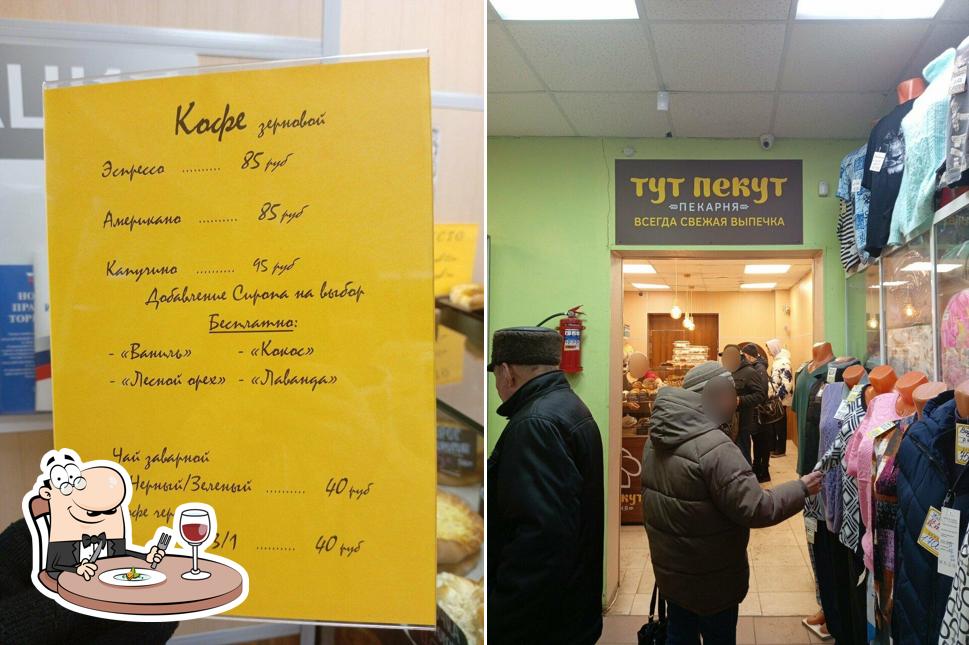 Кофе зерновой
Эспрессо .......... 85 руб
Американо .......... 85 руб
Капучино .......... 95 руб
Добавление Сиропа на выбор
Бесплатно:
- «Ваниль» - «Кокос»
- «Лесной орех» - «Лаванда»
Чай заварной
Черный/Зеленый .......... 40 руб
3/1 .......... 40 руб
тут пекут
ПЕКАРНЯ
ВСЕГДА СВЕЖАЯ ВЫПЕЧКА